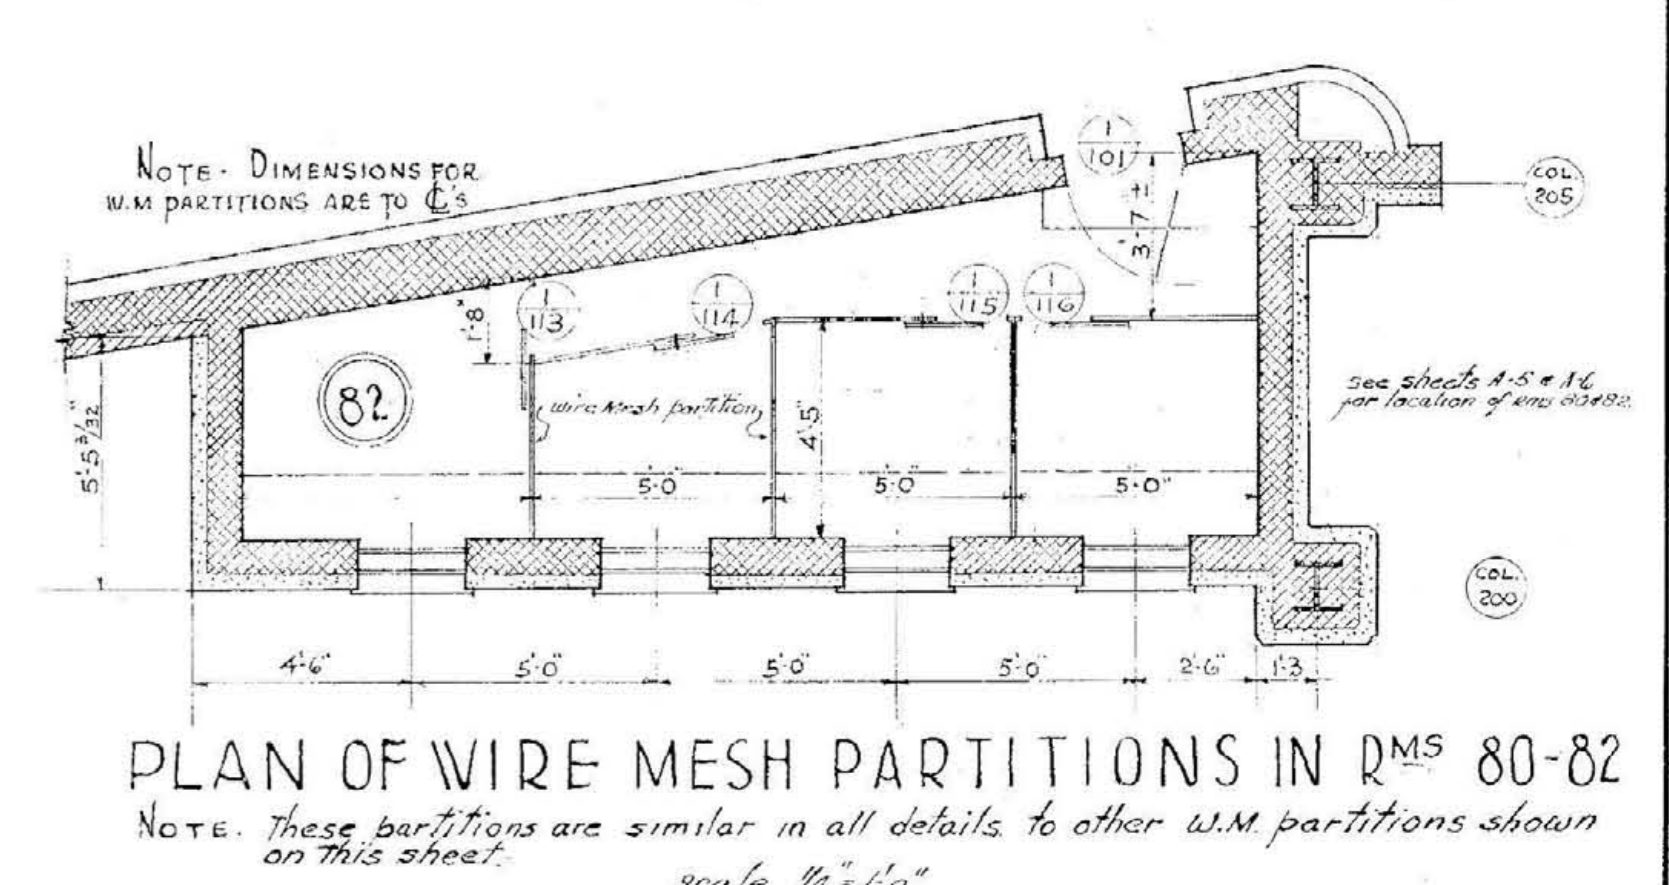 NOTE. DIMENSIONS FOR
W.M PARTITIONS ARE TO ℄'s
1
101
COL.
205
3'-7"±
1
113
1
114
1
115
1
116
1'-8"
82
wire Mesh partition
4'-5"
see sheets A-5 & A-6
for location of rms 80&82.
5'-5 3/32"
5'-0"
5'-0"
5'-0"
COL.
200
4'-6"
5'-0"
5'-0"
5'-0"
2'-6"
1'-3
PLAN OF WIRE MESH PARTITIONS IN RMS 80-82
NOTE. These partitions are similar in all details to other W.M. partitions shown
on this sheet.
scale 1/4"=1'-0"